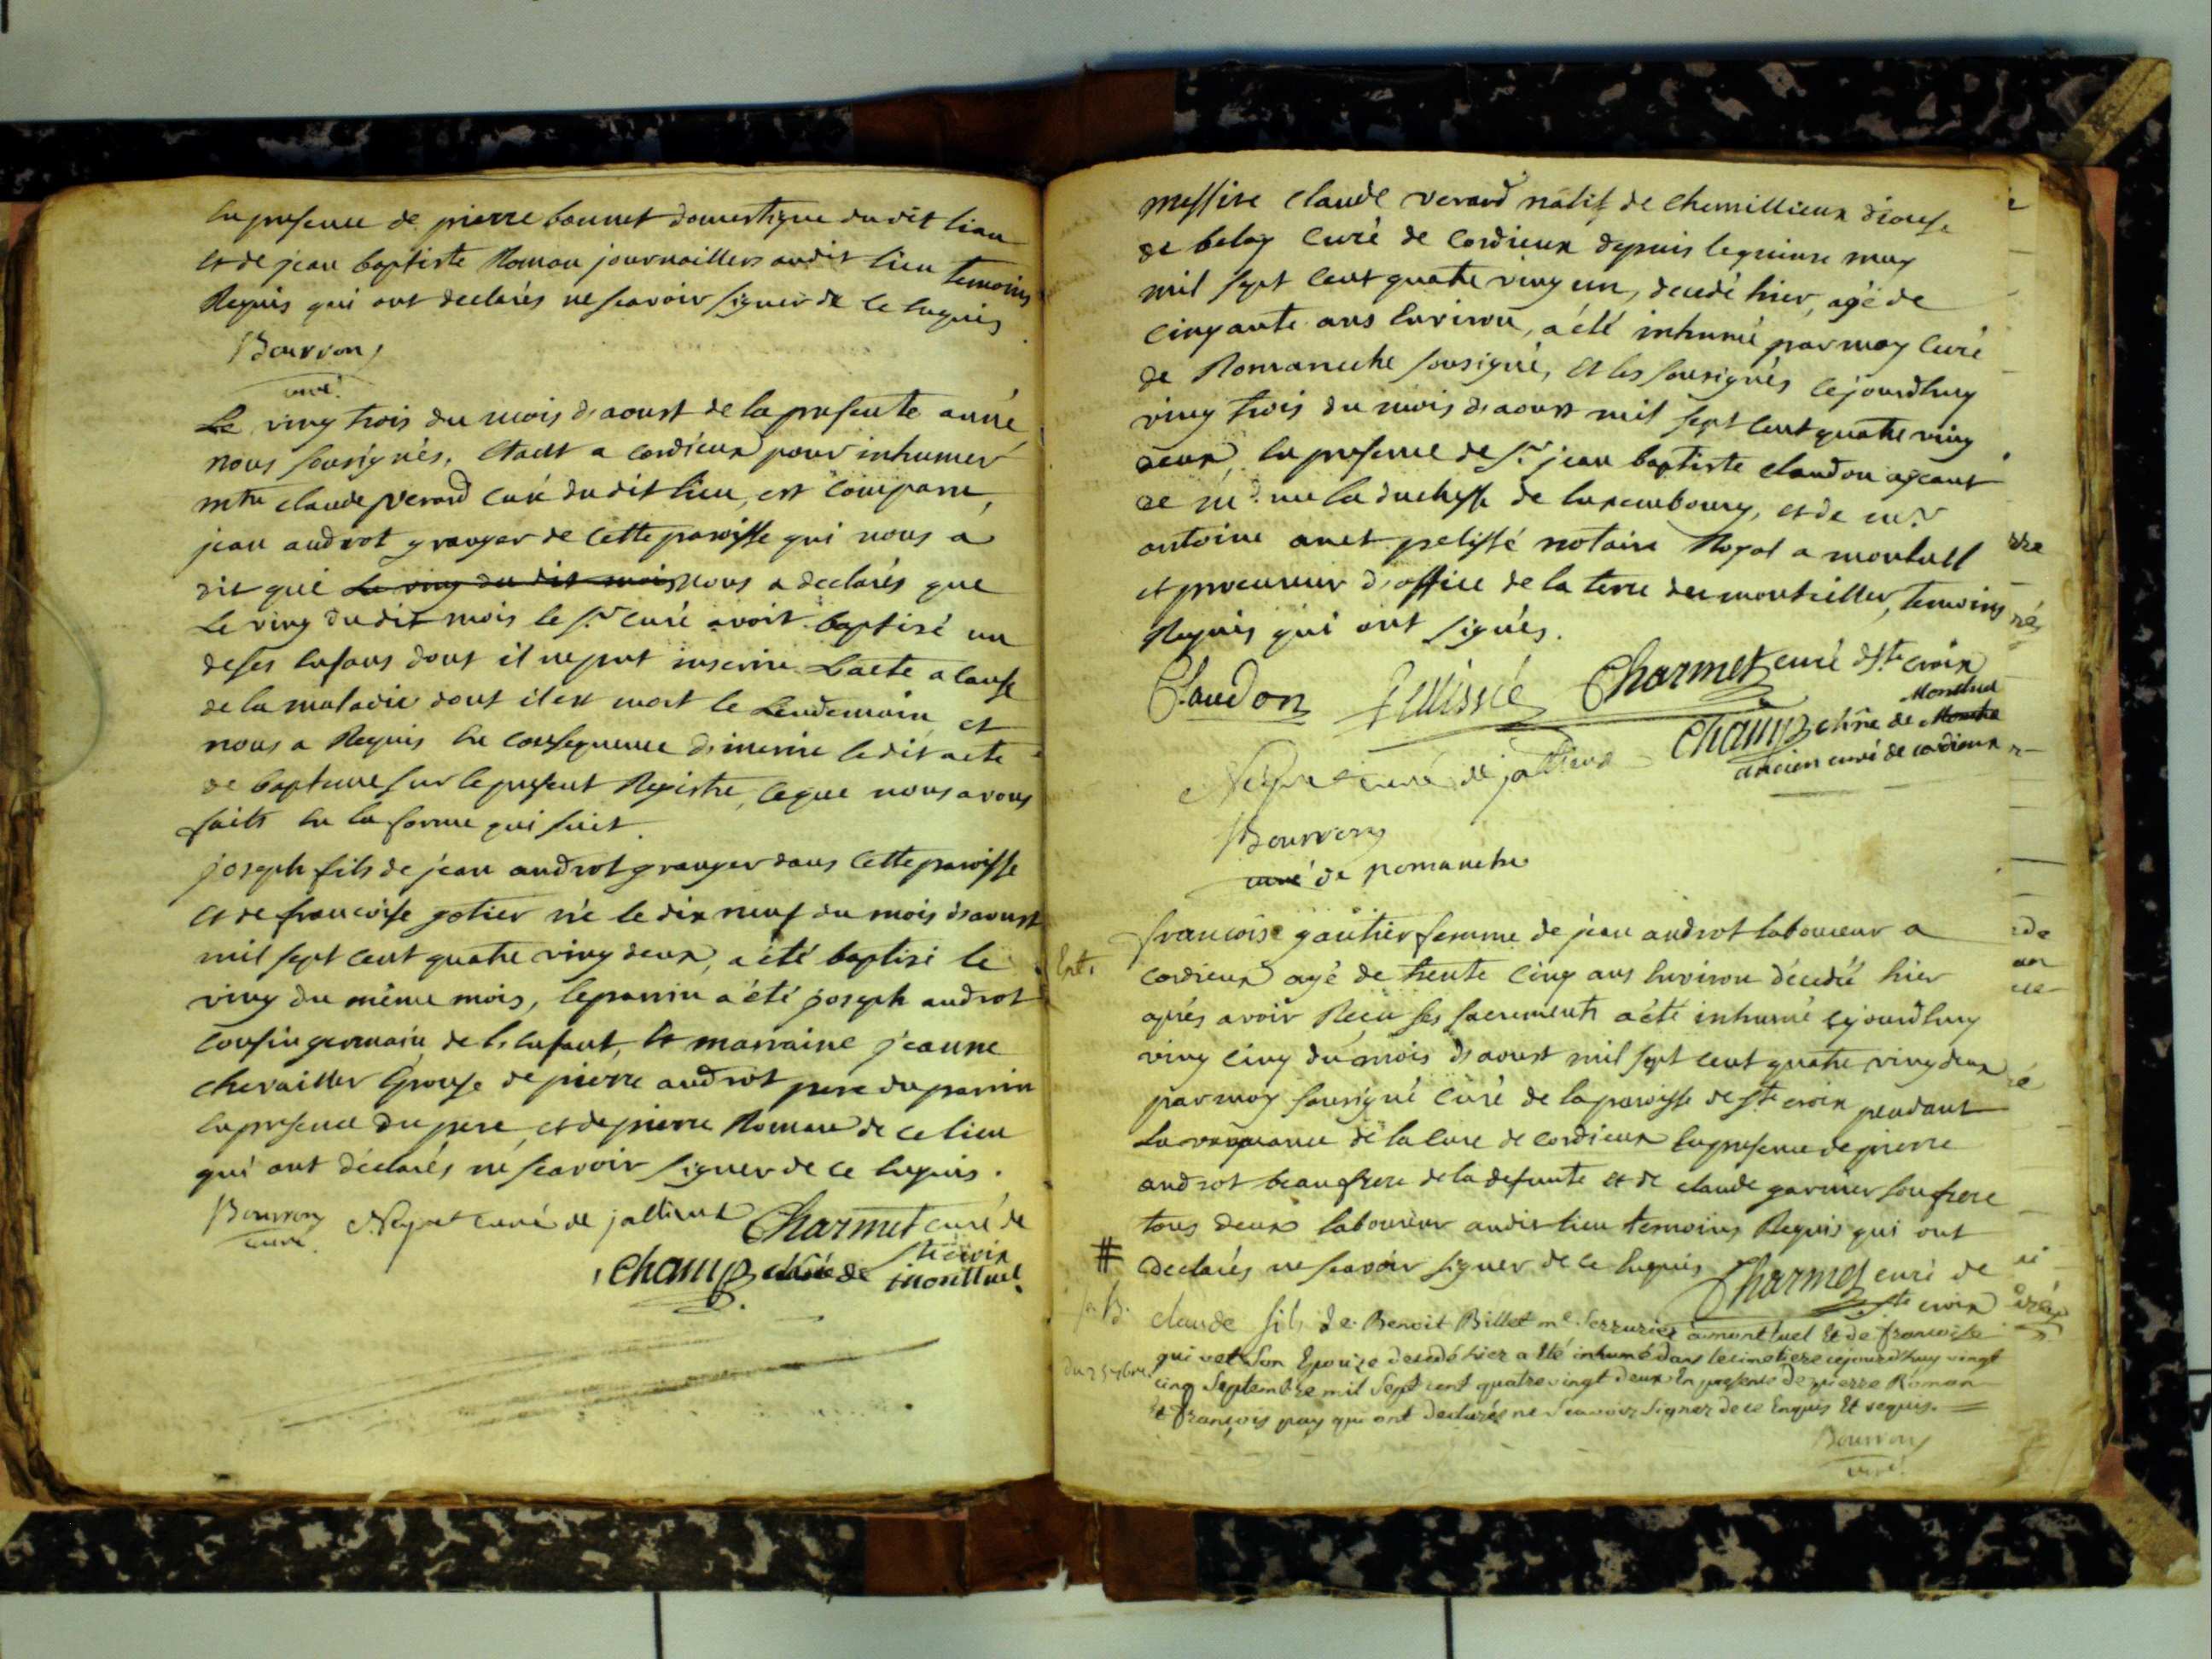 en presence de pierre bonnet domestique du dit lieu
et de jean baptiste Roman journaillers audit lieu temoins
Requis qui ont declarés ne scavoir signer de ce enquis
Bourron
curé
Le ving trois du mois d'aoust de la presente année
nous sousignés, étant a cordieux pour inhumer
mtre claude Verard curé du dit lieu, est comparu,
jean androt granger de cette paroisse qui nous a
dit que le ving du dit mois nous a declarés que
Le ving du dit mois le sr curé avoit baptisé un
de ses enfans dont il ne put inscrire L'acte a cause
de la maladie dont il est mort le Lendemain et
nous a Requis en consequence d'inscrire le dit acte
de bapteme sur le present Registre, ce que nous avons
faits en la forme qui suit.
joseph fils de jean androt granger dans cette paroisse
et de francoise gotier né le dix neuf du mois d'aoust
mil sept cent quatre ving deux, a été baptisé le
ving du même mois, le parrin a été joseph androt
cousin germain de l'enfant, et marraine jeanne
chevailler épouse de pierre androt pere du parrin
en presence du pere, et de pierre Roman de ce lieu
qui ont déclarés ne scavoir signer de ce enquis.
Bourron Neyret curé de jallieux Charmet curé de
curé. ste croix
Champ de montluel
messire claude verard natif de chemillieux diocese
de belay curé de cordieux depuis le quinze may
mil sept cent quatre ving un, decedé hier, agé de
cinquante ans environ, a été inhumé par moy curé
de Romaneche sousigné, et les sousignés cejourdhuy
ving trois du mois d'aoust mil sept cent quatre ving
deux, en presence de sr jean baptiste claudon ageant
de md me la duchesse de luxembourg, et de mr
antoine anet pelissé notaire Royal a montluel
et procureur d'office de la terre de montellier, temoins
Requis qui ont signés.
Claudon Pelissié Charmet curé d ste croix
Champ chne de Montluel
ancien curé de cordieux
Neyret curé de jallieux
Bourron
curé de romaneche
Ent.
francoise gautier femme de jean androt laboureur a
cordieux agé de trente cinq ans environ décedée hier
aprés avoir Reçu ses sacrements a été inhumé cejourdhuy
ving cinq du mois d'aoust mil sept cent quatre ving deux
par moy sousigné curé de la paroisse de ste croix pendant
la vaquance de la cure de cordieux en presence de pierre
androt beaufrere de la defunte et de claude garnier son frere
tous deux laboureur audit lieu temoins Requis qui ont
# declarés ne scavoir signer de ce enquis Charmet curé de
ste croix
claude fils de Benoit Billet me Serrurier a montluel Et de francoise
du 25 7bre.
quivet son Epouze decedé hier a été inhumé dans le cimetiere cejourd'huy vingt
cinq Septembre mil Sept cent quatre vingt deux En presence de pierre Roman
Et François pay qui ont declarés ne Scavoir Signer de ce Enquis Et requis.
Bourron
curé